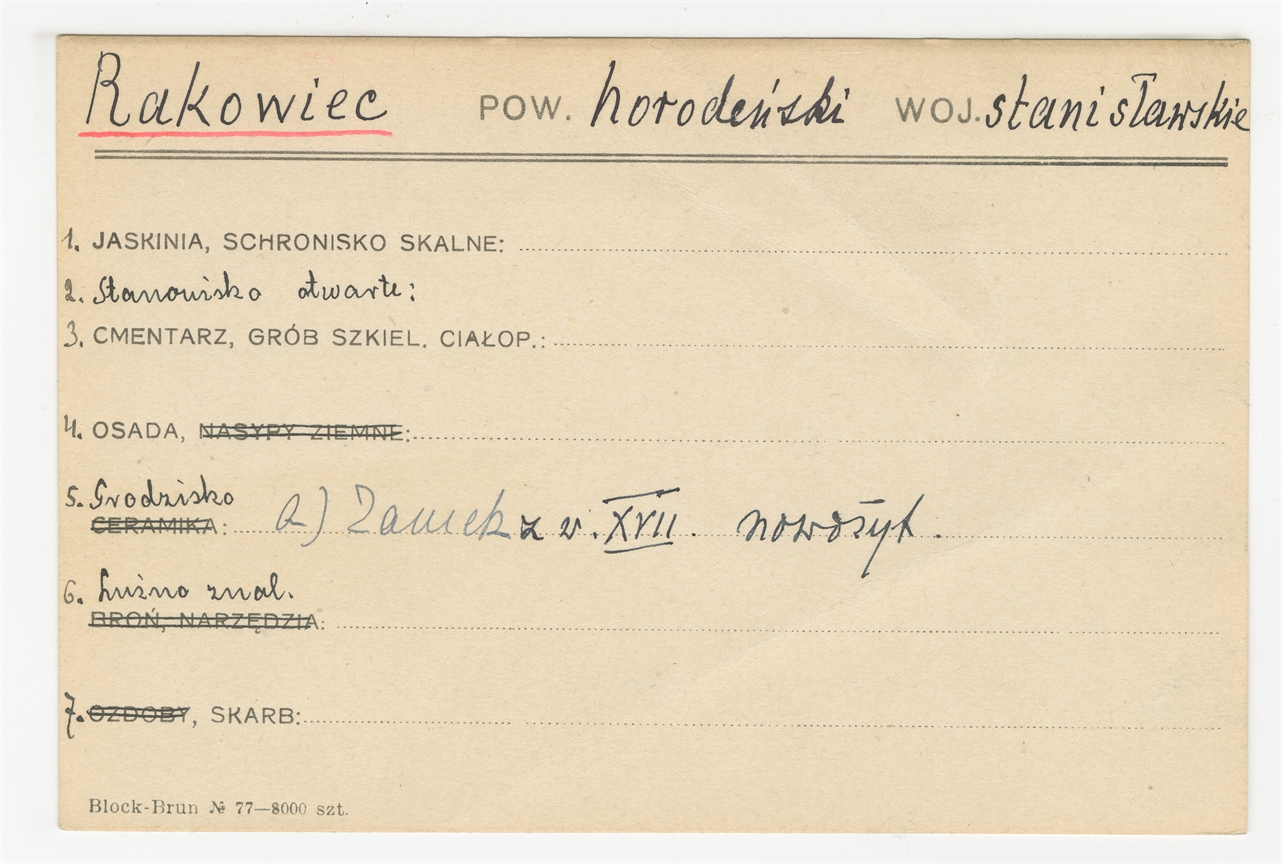 Rakowiec POW. horodeński WOJ. stanisławskie
1. JASKINIA, SCHRONISKO SKALNE:
2. Stanowisko otwarte:
3. CMENTARZ, GRÓB SZKIEL. CIAŁOP.:
4. OSADA, NASYPY ZIEMNE:
5. Grodzisko
CERAMIKA: a) Zamek z w. XVII. nowożyt.
6. Luźno znal.
BROŃ, NARZĘDZIA:
7. OZDOBY, SKARB:
Block-Brun № 77—8000 szt.